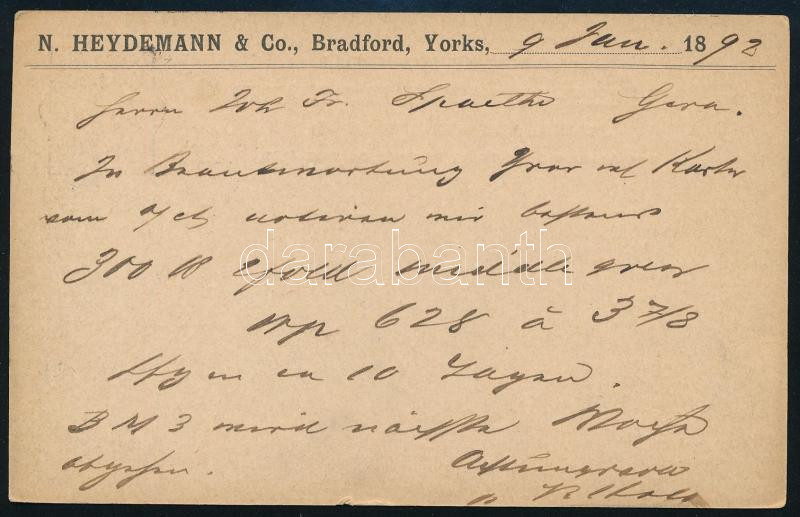 N. HEYDEMANN & Co., Bradford, Yorks, 9 Jan. 1892
Herrn Joh Fr. Spaethe Gera.
In Beantwortung Ihrer Karte
vom 7/ct notiren wir bestens
300 middle grey
628 à 3 7/8
ca 10 Tagen.
B M 3 wird nächste Woche
abgehen.
Achtungsvoll
darabanth